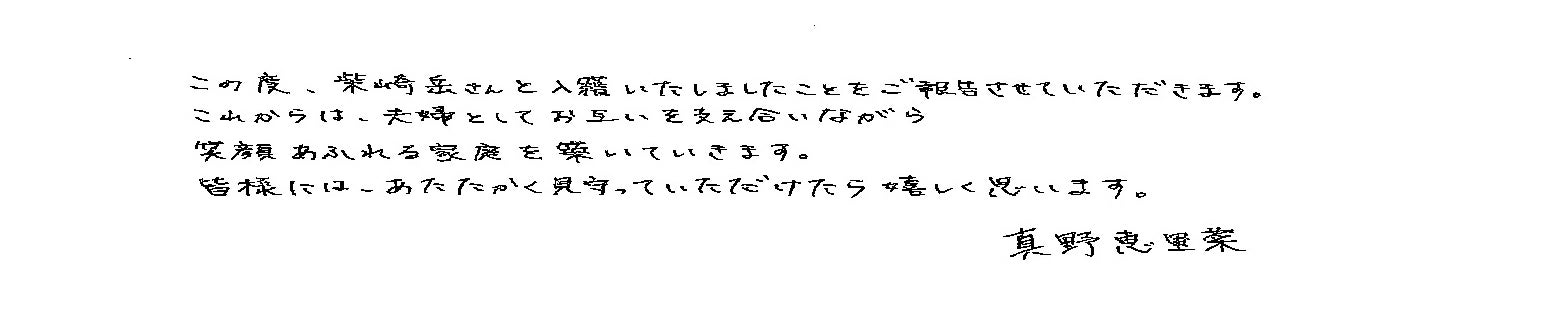 この度、柴崎岳さんと入籍いたしましたことをご報告させていただきます。
これからは、夫婦としてお互いを支え合いながら
笑顔あふれる家庭を築いていきます。
皆様には、あたたかく見守っていただけたら嬉しく思います。
真野恵里菜